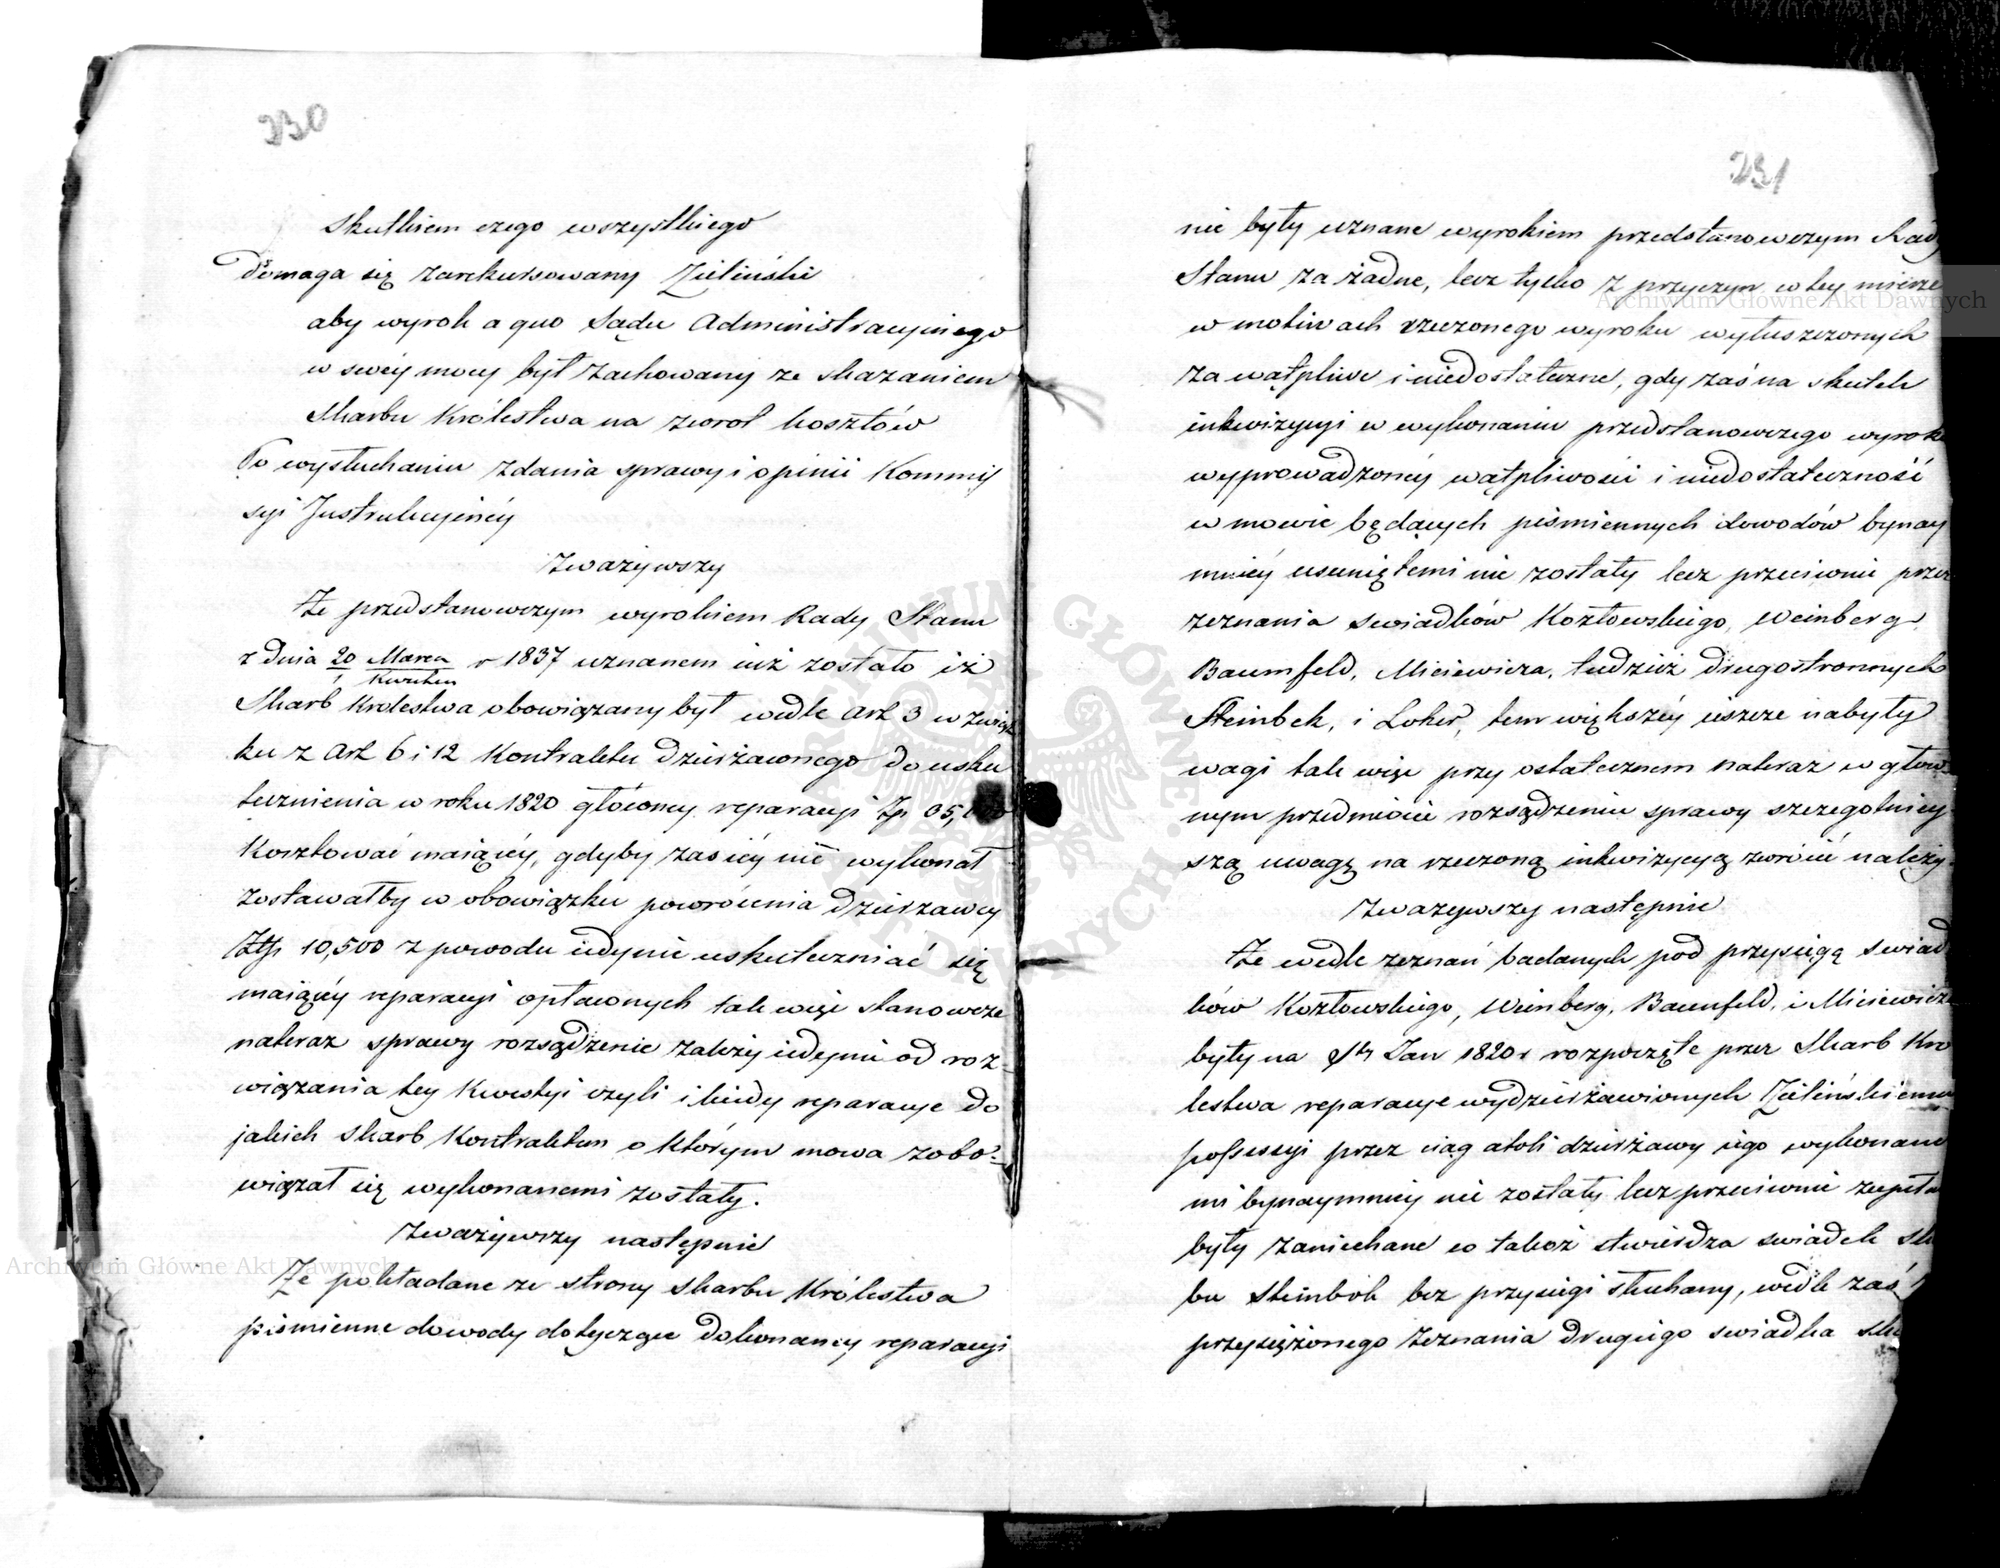 230
skutkiem czego wszystkiego
Domaga się zarekursowany Zieliński
aby wyrok a quo Sądu Administracyinego
w swéy mocy był zachowany ze skazaniem
Skarbu Królestwa na zwrot kosztów
Po wysłuchaniu zdania sprawy i opinii Kommis
syi Instrukcyinéy
Zważywszy
Że przedstanowczym wyrokiem Rady Stanu
z dnia 20 Marca r 1837 uznanem iuż zostało iż
1 Kwietnia
Skarb Krolestwa obowiązany był wedle Art 3 w związ
ku z Art 6 i 12 Kontraktu dzierżawnego do usku
tecznienia w roku 1820 głównéy reparacyi Zp 35,
Kosztować maiącéy, gdyby zas iéy nie wykonał
zostawałby w obowiązku powrócenia dzierzawcy
Złp 10,500 z powodu iedynie uskuteczniać się
maiącéy reparacyi opłaconych tak więc stanowcze
nateraz sprawy rozsądzenie zależy iedynie od roz=
wiązania tey Kwestyi czyli i kiedy reparacye do
jakich Skarb Kontraktem o którym mowa zobo=
wiązał się wykonanemi zostały.
Zważywszy następnie
Że pokładane ze strony Skarbu Królestwa
piśmienne dowody dotyczące dokonaney reparacyi
231
nie były uznane wyrokiem przedstanowczym Rady
Stanu za żadne, lecz tylko z przyczyn w tey mierze
w motiwach rzeczonego wyroku wyłuszczonych
za wątpliwe i niedostateczne, gdy zaś na skutek
inkwizycyi w wykonaniu przedstanowczego wyrok
wyprowadzonéy wątpliwości i niedostateczność
w mowie będących piśmiennych dowodów bynay
mniéy usuniętemi nie zostały lecz przeciwnie przez
zeznania swiadków Kozłowskiego, Weinberg
Baumfeld, Miciewicza, tudzież drugostronnych
Steinbek, i Loker, tem większéy ieszcze nabyły
wagi tak więc przy ostatecznem nateraz w głów
nym przedmiocie rozsądzeniu sprawy szczegolniey
szą uwagę na rzeczoną inkwizycyą zwrócić należy.
Zważywszy następnie
Że wedle zeznań badanych pod przysięgą swiad
ków Kozłowskiego, Weinberg, Baumfeld, i Miciewicz
były na Sty Jan 1820 r rozpoczęte przez Skarb Kro
lestwa reparacye wydzierżawionych Zielińskiemu
possessyi przez ciąg atoli dzierżawy iego wykonane
mi bynaymniey nie zostały lecz przeciwnie zupeła
były zaniechane co takoż stwierdza swiadek Sk
bu Steinbok bez przysięgi słuchany, wedle zaś
przysiężonego zeznania drugiego swiadka Sk
Archiwum Główne Akt Dawnych